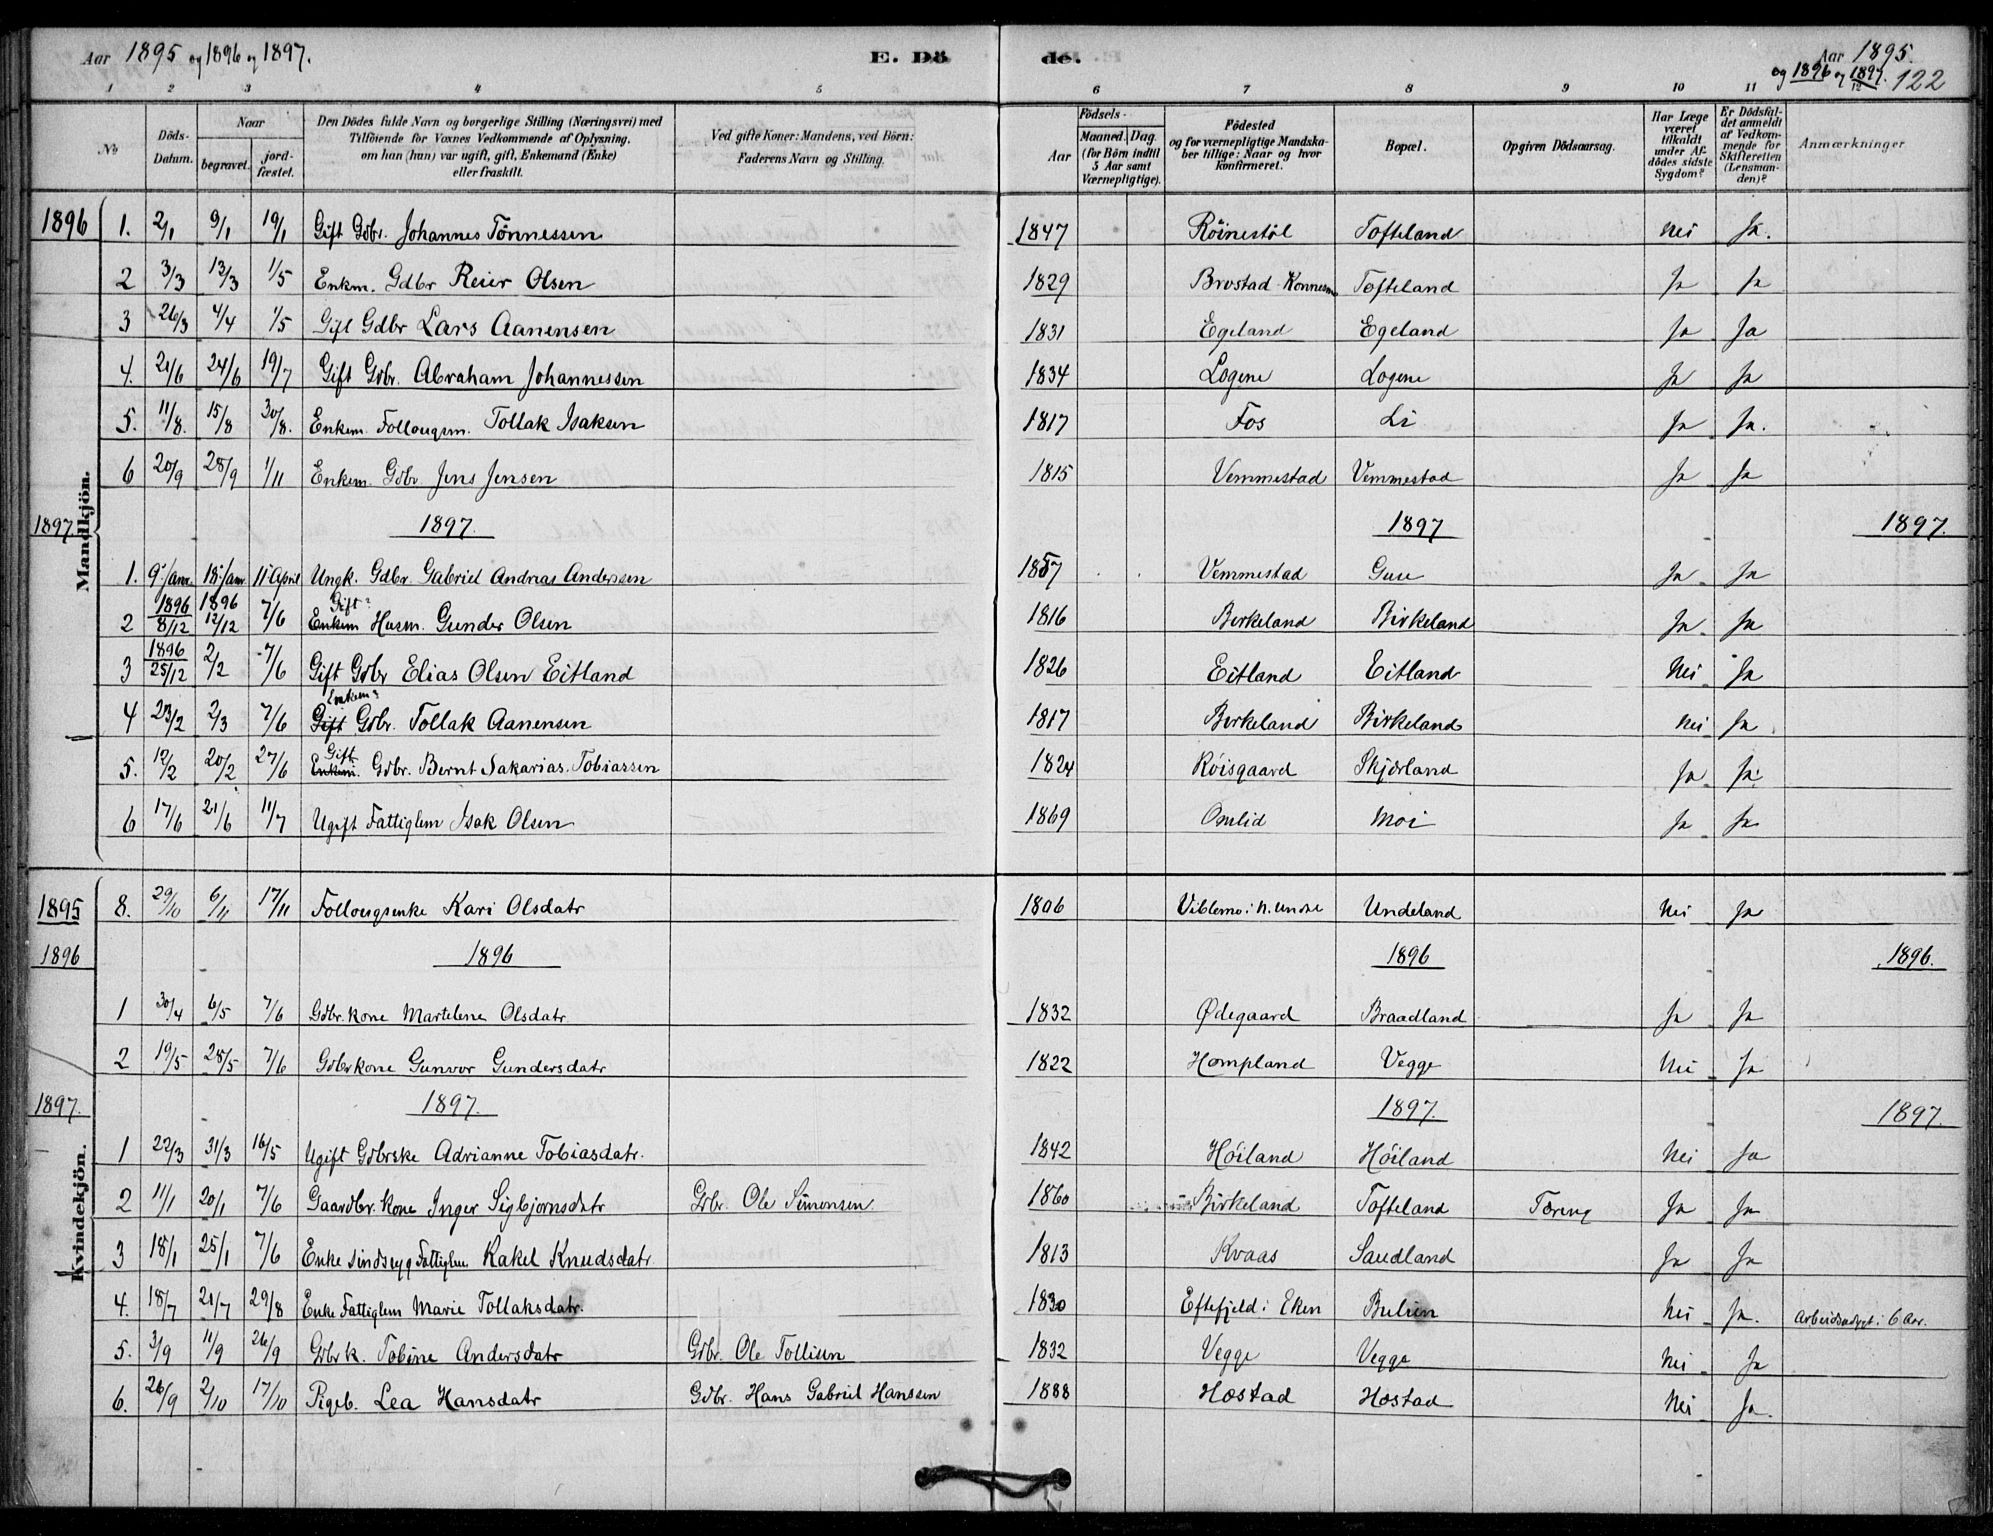 Aar 1895 og 1896 og 1897.
E. Dö
de.
Aar 1895.
og 1896 og 1897. 122
1 2 3 4 5 6 7 8 9 10 11 12
No
Döds-Datum.
Naar
begravet.
jordfæstet.
Den Dödes fulde Navn og borgerlige Stilling (Næringsvei) med
Tilföiende for Voxnes Vedkommende af Oplysning,
om han (hun) var ugift, gift, Enkemand (Enke)
eller fraskilt.
Ved gifte Koner: Mandens, ved Börn:
Faderens Navn og Stilling.
Födsels-
Aar
Maaned. Dag.
(for Börn indtil
5 Aar samt
Værnepligtige).
Födested
og for værnepligtige Mandska-
ber tillige: Naar og hvor
konfirmeret.
Bopæl.
Opgiven Dödsaarsag.
Har Læge
været
tilkaldt
under Af-
dödes sidste
Sygdom?
Er Dödsfal-
det anmeldt
af Vedkom-
mende for
Skifteretten
(Lensman-
den)?
Anmærkninger
Mandkjön.
1896 1. 2/1 9/1 19/1 Gift Gdbr. Johannes Tönnessen 1847 Röinestöl Tofteland Nei Ja.
2 3/3 13/3 1/5 Enkm. Gdbr Reier Olsen 1829 Brostad Tofteland Ja Ja
3 26/3 4/4 1/5 Gift Gdbr Lars Aanensen 1831 Egeland Egeland Ja Ja
4. 21/6 24/6 19/7 Gift Gdbr. Abraham Johannessen 1834 Logene Logene Ja Ja
5. 11/8. 15/8 30/8. Enkem. Follougsm. Tollak Isaksen 1817 Fos Li Ja Ja.
6 20/9 28/9 1/11 Enkem. Gdbr. Jens Jensen 1815 Vemmestad Vemmestad Ja Ja
1897. 1897. 1897 1897.
1. 9 Janr. 18 Janr 11 April Ungk. Gdbr. Gabriel Andreas Anderssen 1857 Vemmestad Guse Ja Ja
2 1896 8/12 1896 12/12 7/6 Enkem Gift? Husm. Gunder Olsen 1816 Birkeland Birkeland Ja Ja
3 1896 25/12 2/2 7/6 Gift Gdbr Elias Olsen Eitland 1826 Eitland Eitland Nei Ja
4 23/2 2/3 7/6 Gift Enkem? Gdbr. Tollak Aanensen 1817 Birkeland Birkeland Nei Ja
5. 12/2 20/2 27/6 Enkem. Gift Gdbr. Bernt Sakarias Tobiassen 1824 Röisgaard Skjærland Ja Ja
6 17/6 21/6 11/7 Ugift Fattiglem Isak Olsen 1869 Omlid Moi Ja Ja
Kvindekjön.
1895 8. 29/10 6/11 17/11 Follougsenke Kari Olsdatr 1806 Viblemo i N. Undal Undeland Nei Ja
1896 1896 1896 1896.
1 30/4 6/5 7/6 Gdbr. kone Martelene Olsdatr 1832 Ødegaard Braadland Ja Ja
2 19/5 28/5 7/6 Gdbrkone Gunvor Gundersdatr 1822 Hompland Vegge Nei Ja
1897. 1897. 1897. 1897.
1 22/3 31/3 16/5 Ugift Gdbrske Adrianne Tobiasdatr. 1842 Höiland Höiland Nei Ja
2 11/1 20/1 7/6 Gaardbr. kone Inger Sigbjornsdatr Gdbr. Ole Simonsen 1860 Birkeland Tofteland Tæring Ja Ja
3 18/1 25/1 7/6 Enke Sindsyg Fattiglem Rakel Knudsdatr 1813 Kvaas Saudland Ja Ja
4. 18/7 21/7 29/8 Enke Fattiglem Marie Tollaksdatr. 1830 Eftefjeld i Eken Buluen Nei Ja. i 6 Aar.
5. 3/9 11/9 26/9 Gdbr k. Tobine Andersdatr Gdbr. Ole Tollisen 1832 Vegge Vegge Nei Ja
6. 26/9 2/10 17/10 Pigeb. Lea Hansdatr Gdbr. Hans Gabriel Hanssen 1888 Høstad Høstad Nei Ja.